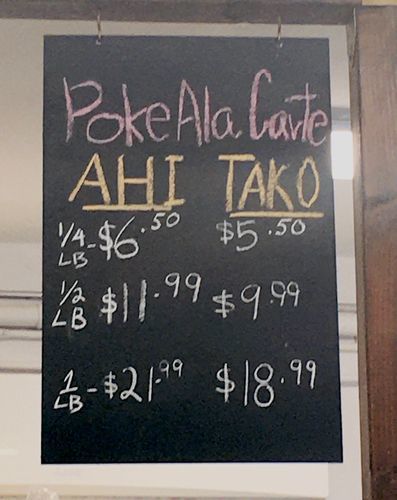 Poke Ala Carte
AHI TAKO
1/4 LB - $6.50 $5.50
1/2 LB $11.99 $9.99
1 LB - $21.99 $18.99